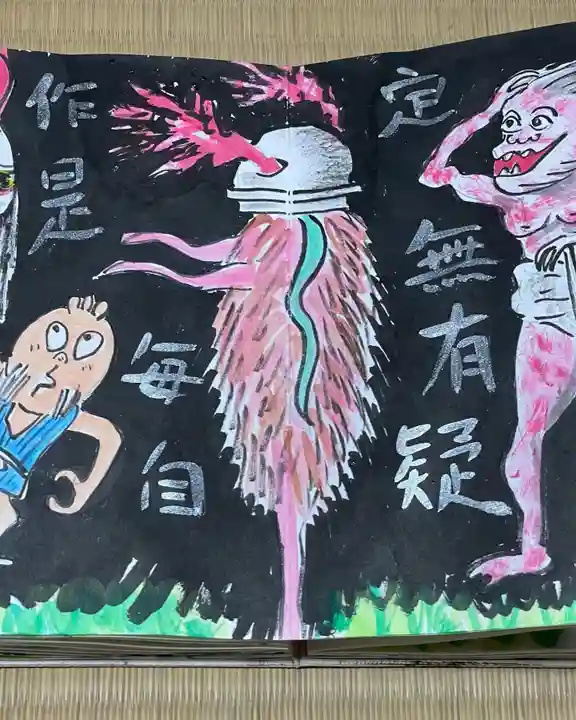 定
無有疑
作是
毎自